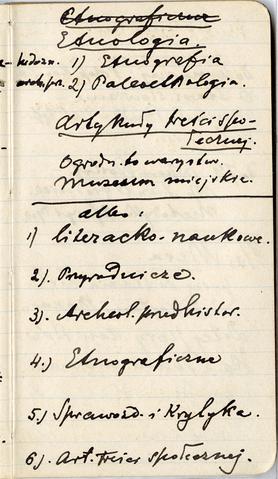 Etnograficzne
Etnologia.
ludozn. 1) Etnografia
archpr. 2) Paleoetnologia.
Artykuły treści spo-
łecznej.
Ogrodn. towarzystw.
Muzeum miejskie.
albo:
1) literacko-naukowe.
2). Przyrodnicze.
3). Archeol. predhistor.
4.) Etnograficzne
5.) Sprawozd. i Krytyka.
6). Art. treści społecznej.